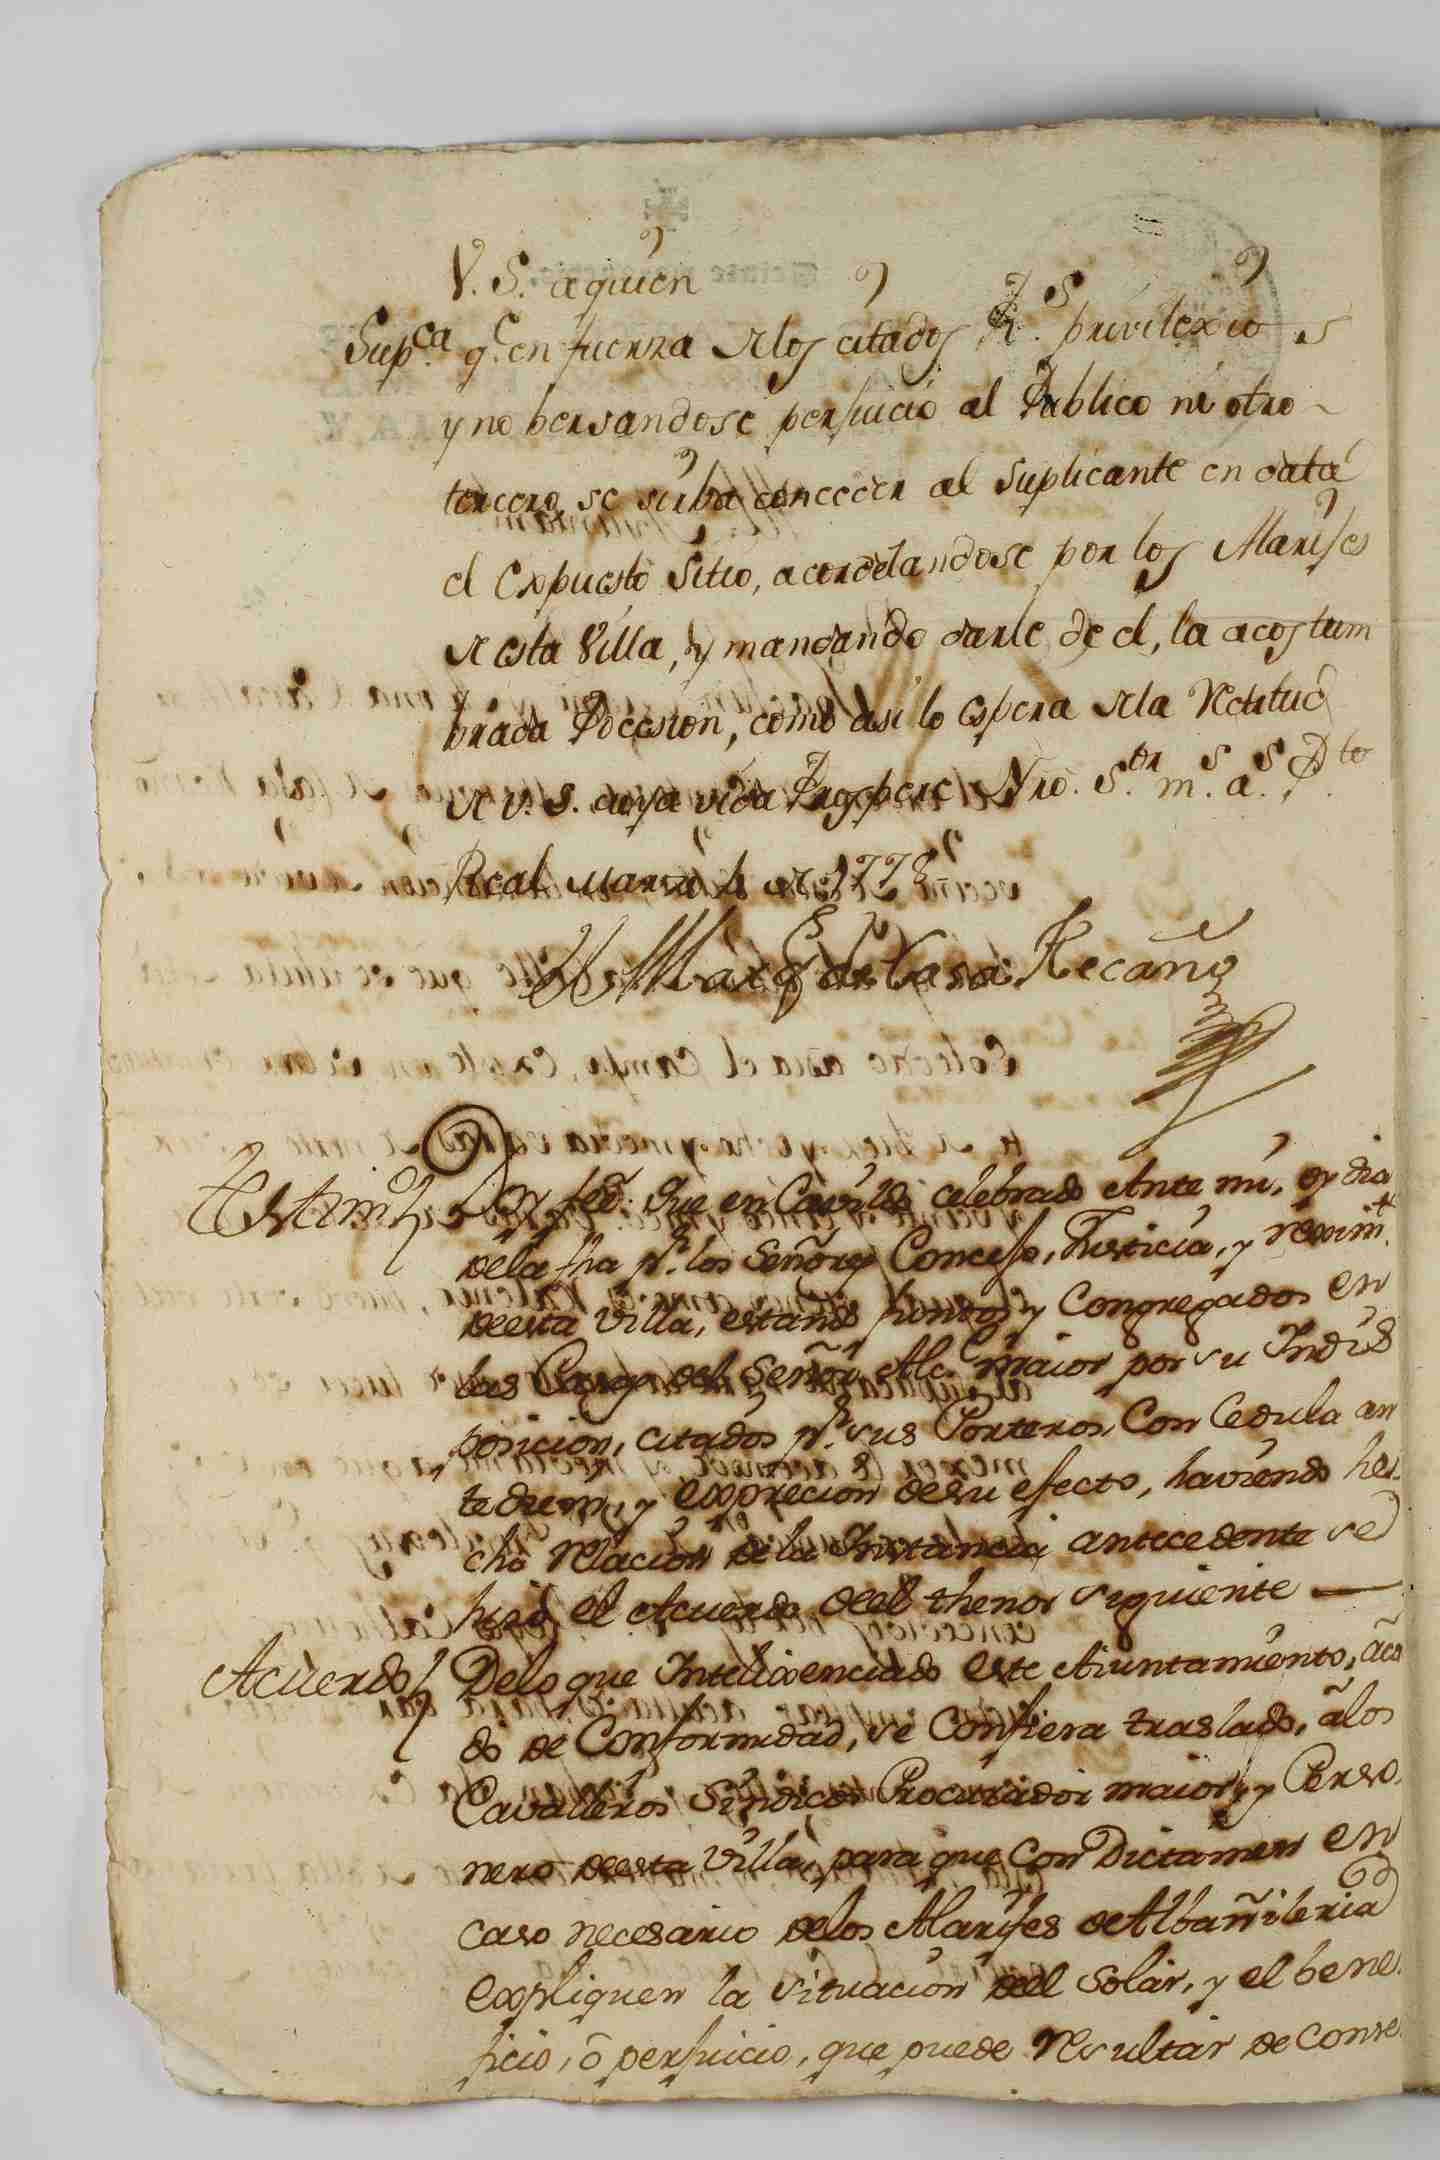 V. S. a quien
Sup.ca q.e en fuerza de los citados R.s privilexios
y no bersandose perjuicio al Publico ni otro
tercero, se sirba conceder al Suplicante en data
el Expuesto Sitio, acordelandose por los Marifes
de esta Villa, y mandando darle de el, la acostum
brada Pocesion, como asi lo espera de la Rectitud
de V. S. cuya vida Prospere Nro. S.or m.s a.s P.to
Real Marzo de 1778
El Marq.s de Casa Recaño
Testim.o Doy fee: Que en Cavildo celebrado Ante mi, oy dia
de la fha p.r los Señores Concejo, Justicia, y reximt.
de esta Villa, estando juntos y Congregados en
las Casas del Señor Alc.e maior por su Indis
posicion, citados p.r sus Porteros, Con Cedula an
te diem, y exprecion de su efecto, haviendo he
cho relacion de la Instancia antecedente se
hizo el Acuerdo del thenor siguiente —
Acuerdo De lo que Intelixenciado este Aiuntamiento, aco
do de Conformidad, se Confiera traslado, a los
Cavalleros Sindicos Procurador maior, y Perso
nero de esta Villa, para que Con Dictamen en
caso necesario de los Alarifes de Albañileria
expliquen la situacion del Solar, y el bene
ficio, o perjuicio, que puede resultar de Conse